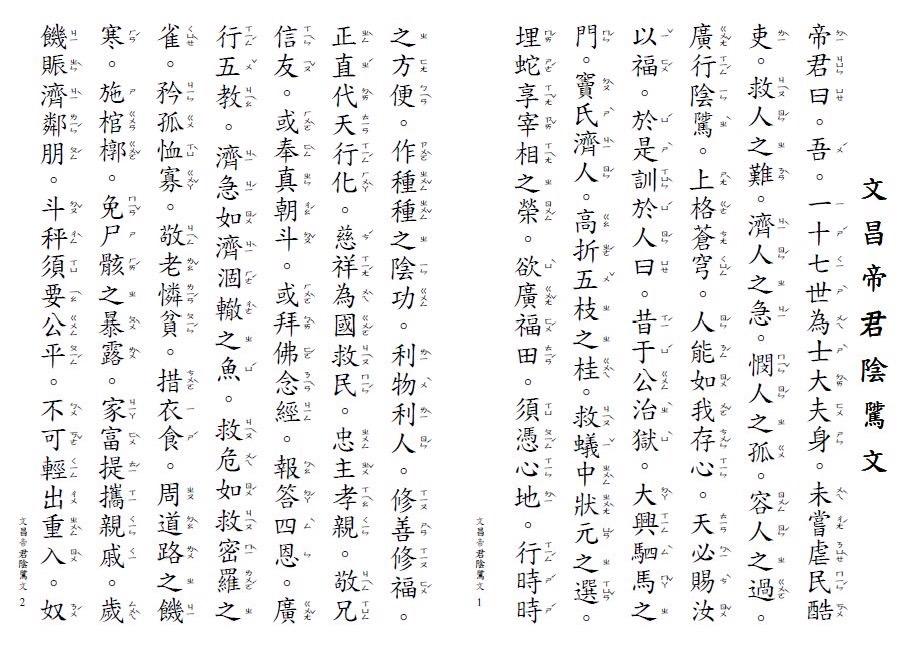 文昌帝君陰騭文
帝君曰。吾。一十七世為士大夫身。未嘗虐民酷
吏。救人之難。濟人之急。憫人之孤。容人之過。
廣行陰騭。上格蒼穹。人能如我存心。天必賜汝
以福。於是訓於人曰。昔于公治獄。大興駟馬之
門。竇氏濟人。高折五枝之桂。救蟻中狀元之選。
埋蛇享宰相之榮。欲廣福田。須憑心地。行時時
文昌帝君陰騭文 1
之方便。作種種之陰功。利物利人。修善修福。
正直代天行化。慈祥為國救民。忠主孝親。敬兄
信友。或奉真朝斗。或拜佛念經。報答四恩。廣
行五教。濟急如濟涸轍之魚。救危如救密羅之
雀。矜孤恤寡。敬老憐貧。措衣食。周道路之饑
寒。施棺槨。免尸骸之暴露。家富提攜親戚。歲
饑賑濟鄰朋。斗秤須要公平。不可輕出重入。奴
文昌帝君陰騭文 2